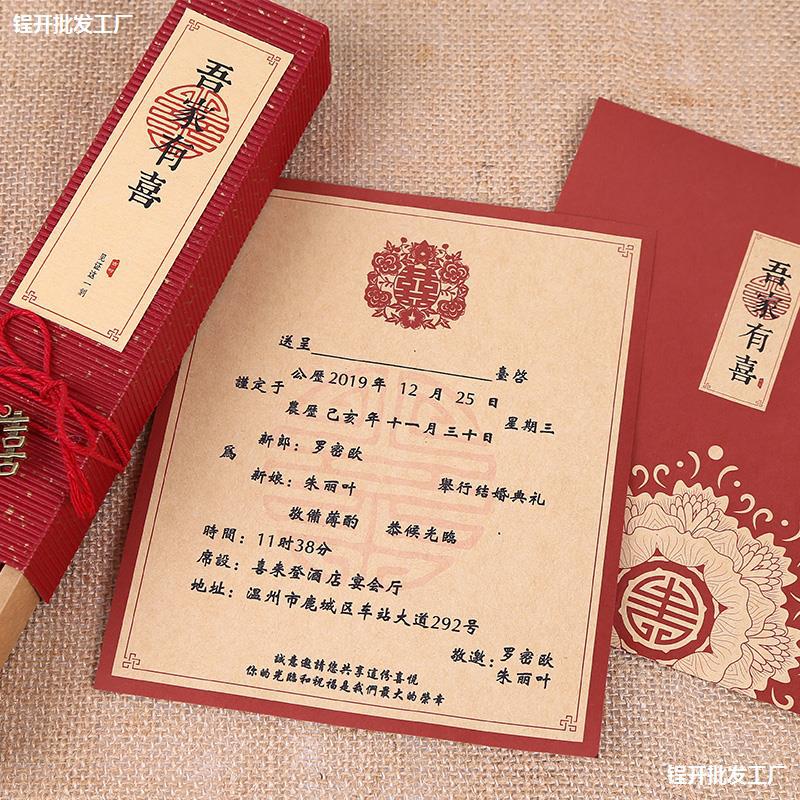 锃开批发工厂
锃开批发工厂
吾家有喜
见证这一刻
送呈 臺啓
謹定于
公歷2019年 12月 25日
農歷己亥年十一月三十日
星期三
為
新郎：罗密欧
新娘：朱丽叶
舉行结婚典礼
敬備薄酌 恭候光臨
時間：11时38分
席設：喜来登酒店宴会厅
地址：温州市鹿城区车站大道292号
敬邀：罗密欧
朱丽叶
誠意邀請您共享這份喜悦
你的光臨和祝福是我們最大的榮幸
吾家有喜
锃开批发工厂